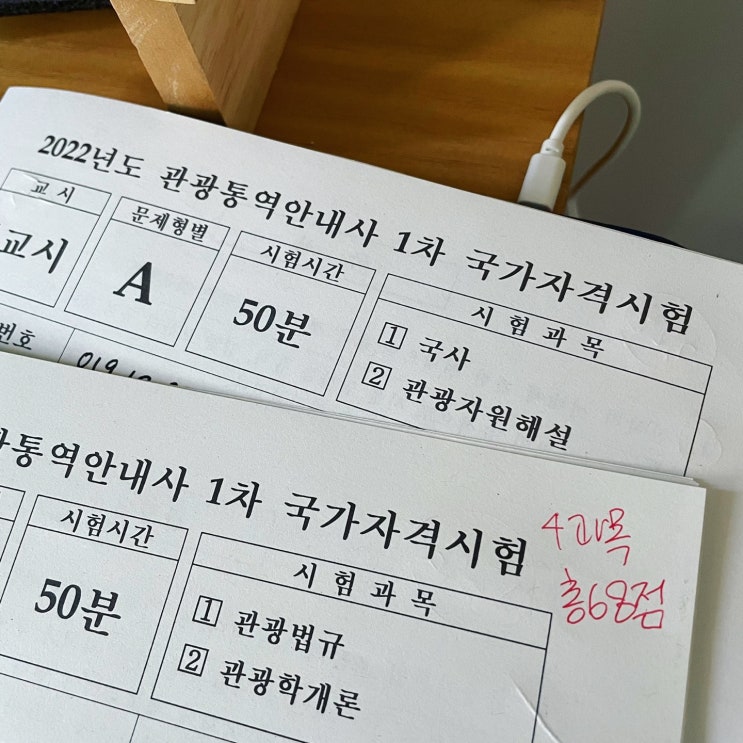 2022년도 관광통역안내사 1차 국가자격시험
교 시
문제형별
시험시간
시 험 과 목
교시
A
50분
1 국사
2 관광자원해설
번호
통역안내사 1차 국가자격시험
시험시간
시 험 과 목
50분
1 관광법규
2 관광학개론
4과목
총68점